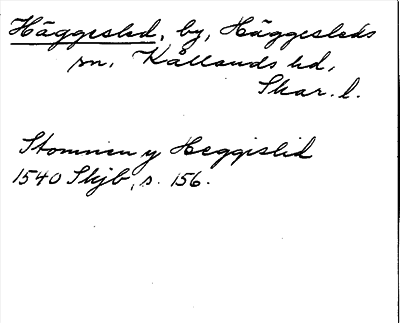 Häggesled, by, Häggesleds
sn, Kållands hd,
Skar. l.
Stommen y Heggislid
1540 Skjb, s. 156.